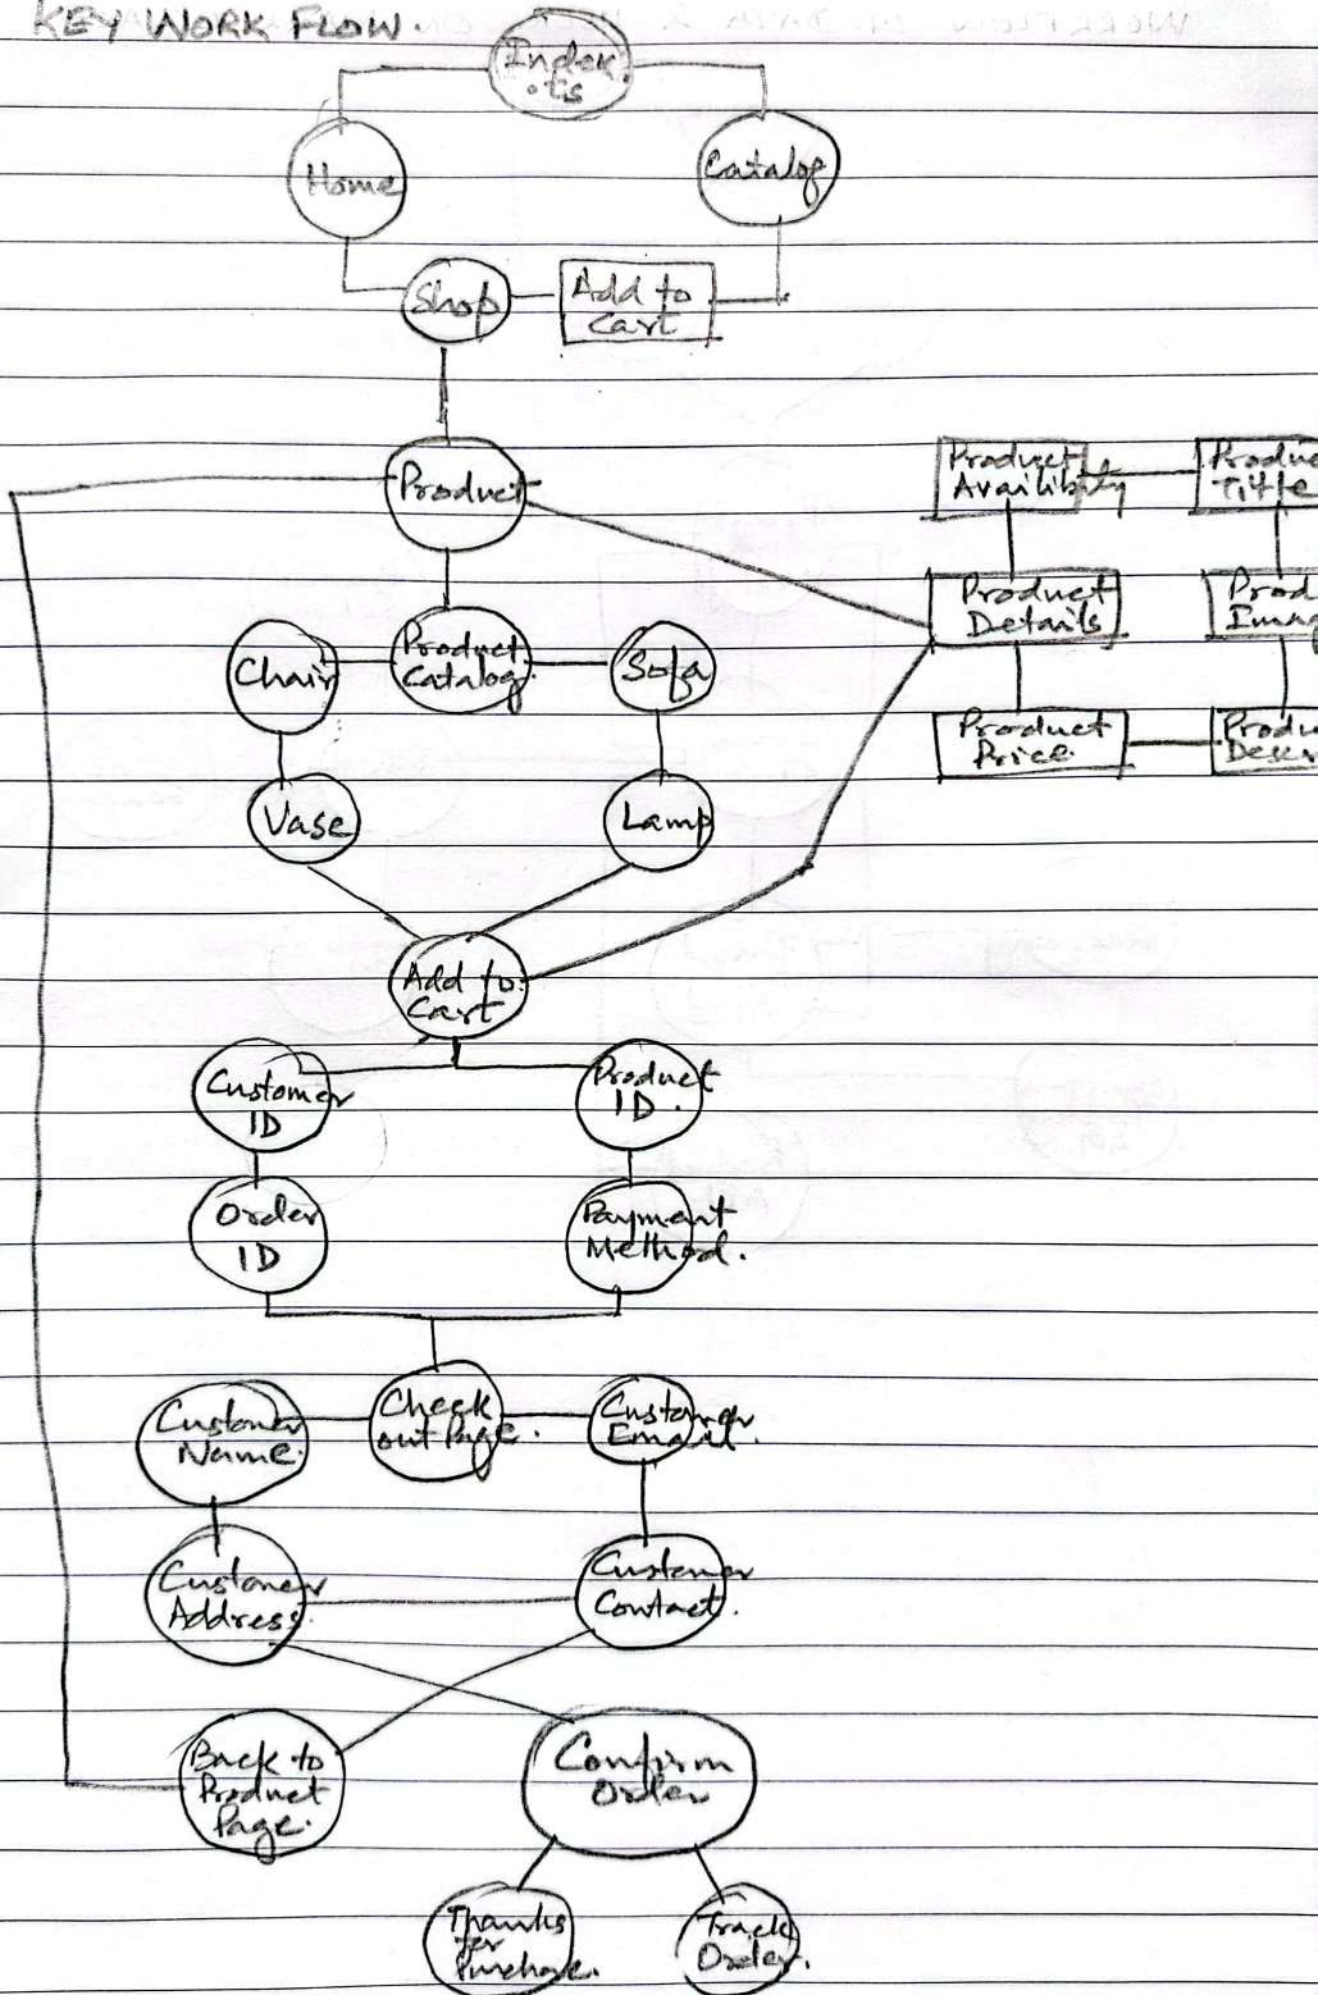 KEY WORK FLOW.
Index
.ts
Home
Catalog
Shop
Add to
Cart
Product
Product
Availibity
Produc
Title
Product
Details
Prod
Imag
Product
Price.
Produ
Descr
Chair
Product
Catalog.
Sofa
Vase
Lamp
Add to
Cart
Customer
ID
Product
ID.
Order
ID
Payment
Method.
Customer
Name.
Check
out Page.
Customer
Email.
Customer
Address.
Customer
Contact.
Back to
Product
Page.
Confirm
Order
Thanks
for
Purchase.
Track
Order.